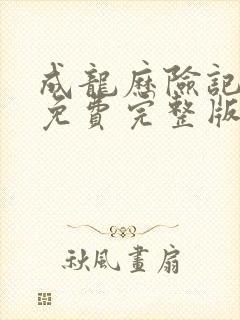 成龍歷險記
免費完整版
秋風畫扇